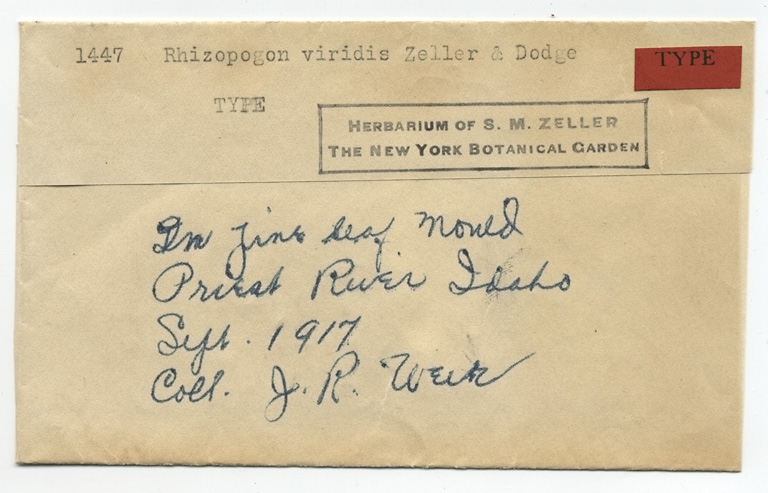 1447 Rhizopogon viridis Zeller & Dodge
TYPE
TYPE
HERBARIUM OF S. M. ZELLER
THE NEW YORK BOTANICAL GARDEN
In pine leaf mould
Priest River Idaho
Sept. 1917
Coll. J. R. Weir